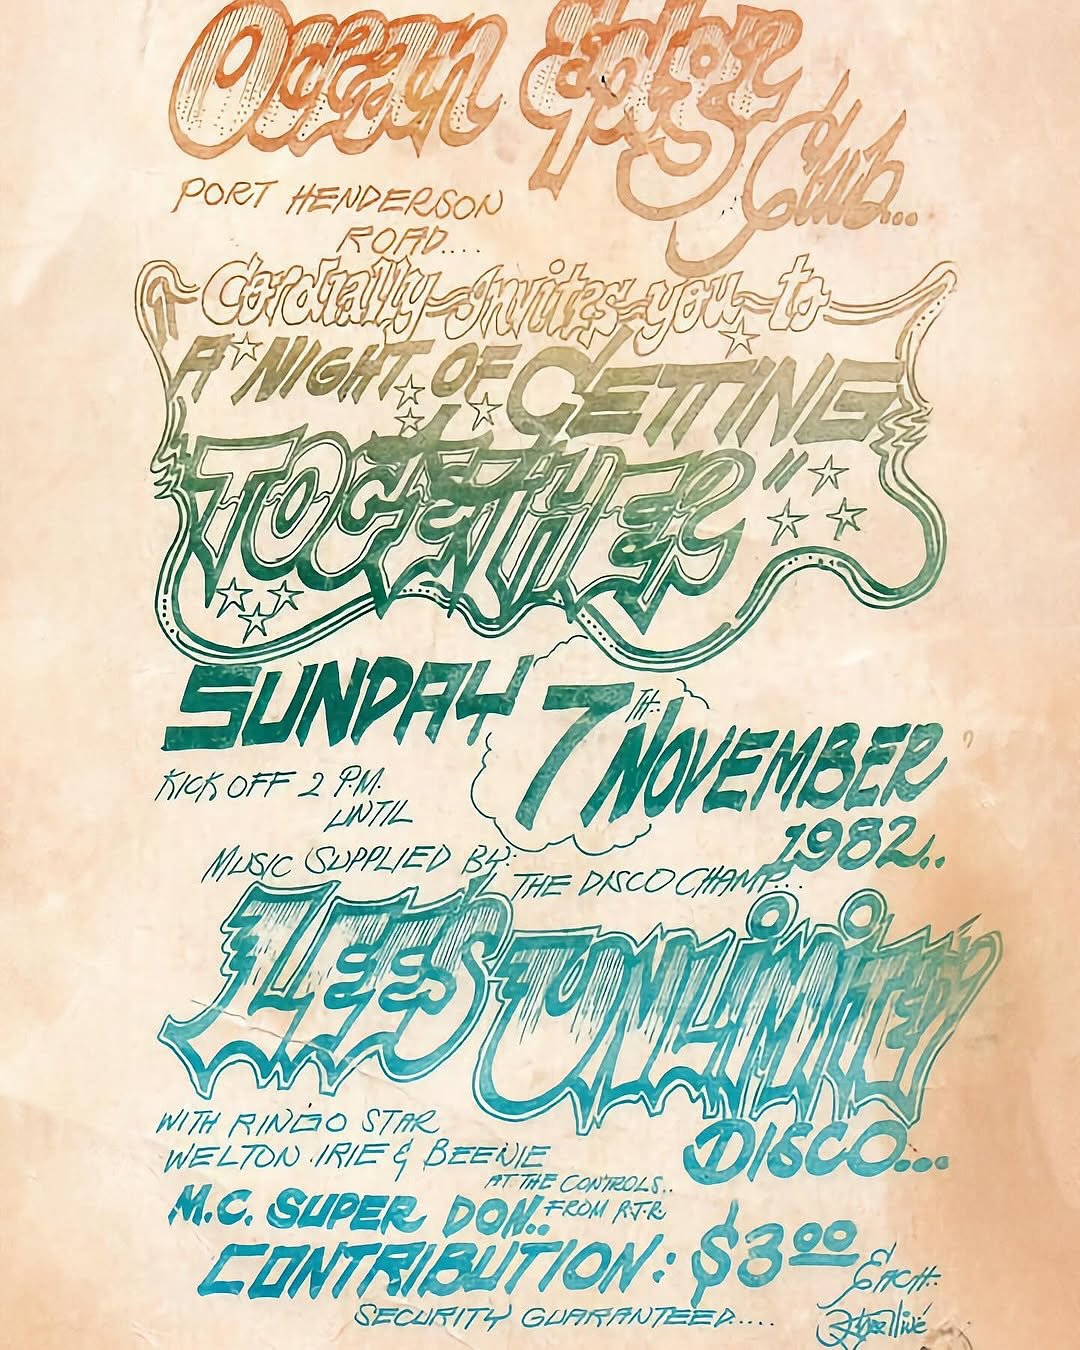 Ocean
Club...
PORT HENDERSON
ROAD....
Cordially invites you to
A NIGHT OF GETTING
TOGETHER"
SUNDAY 7TH. NOVEMBER
1982..
KICK OFF 2 P.M.
UNTIL
MUSIC SUPPLIED BY:
THE DISCO CHAMP...
LEES UNLIMITED
DISCO...
WITH RINGO STAR
WELTON IRIE & BEENIE
AT THE CONTROLS..
M.C. SUPER DON.. FROM R.T.R
CONTRIBUTION: $3.00
EACH..
SECURITY GUARANTEED.....